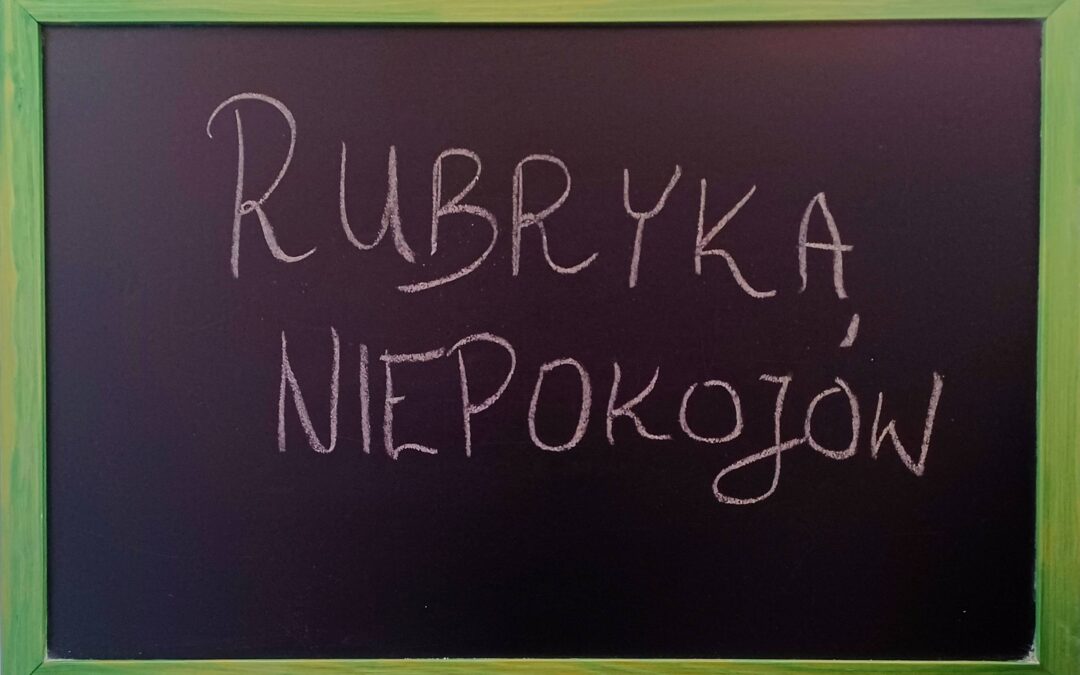 RUBRYKA
NIEPOKOJÓW